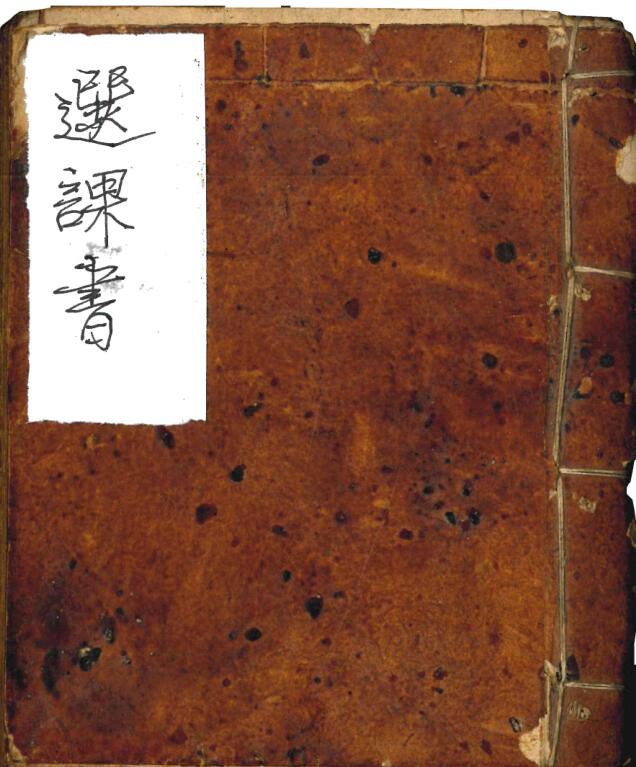 選課書